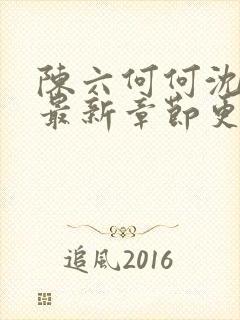 陳六何何沈
最新章節更
追風2016